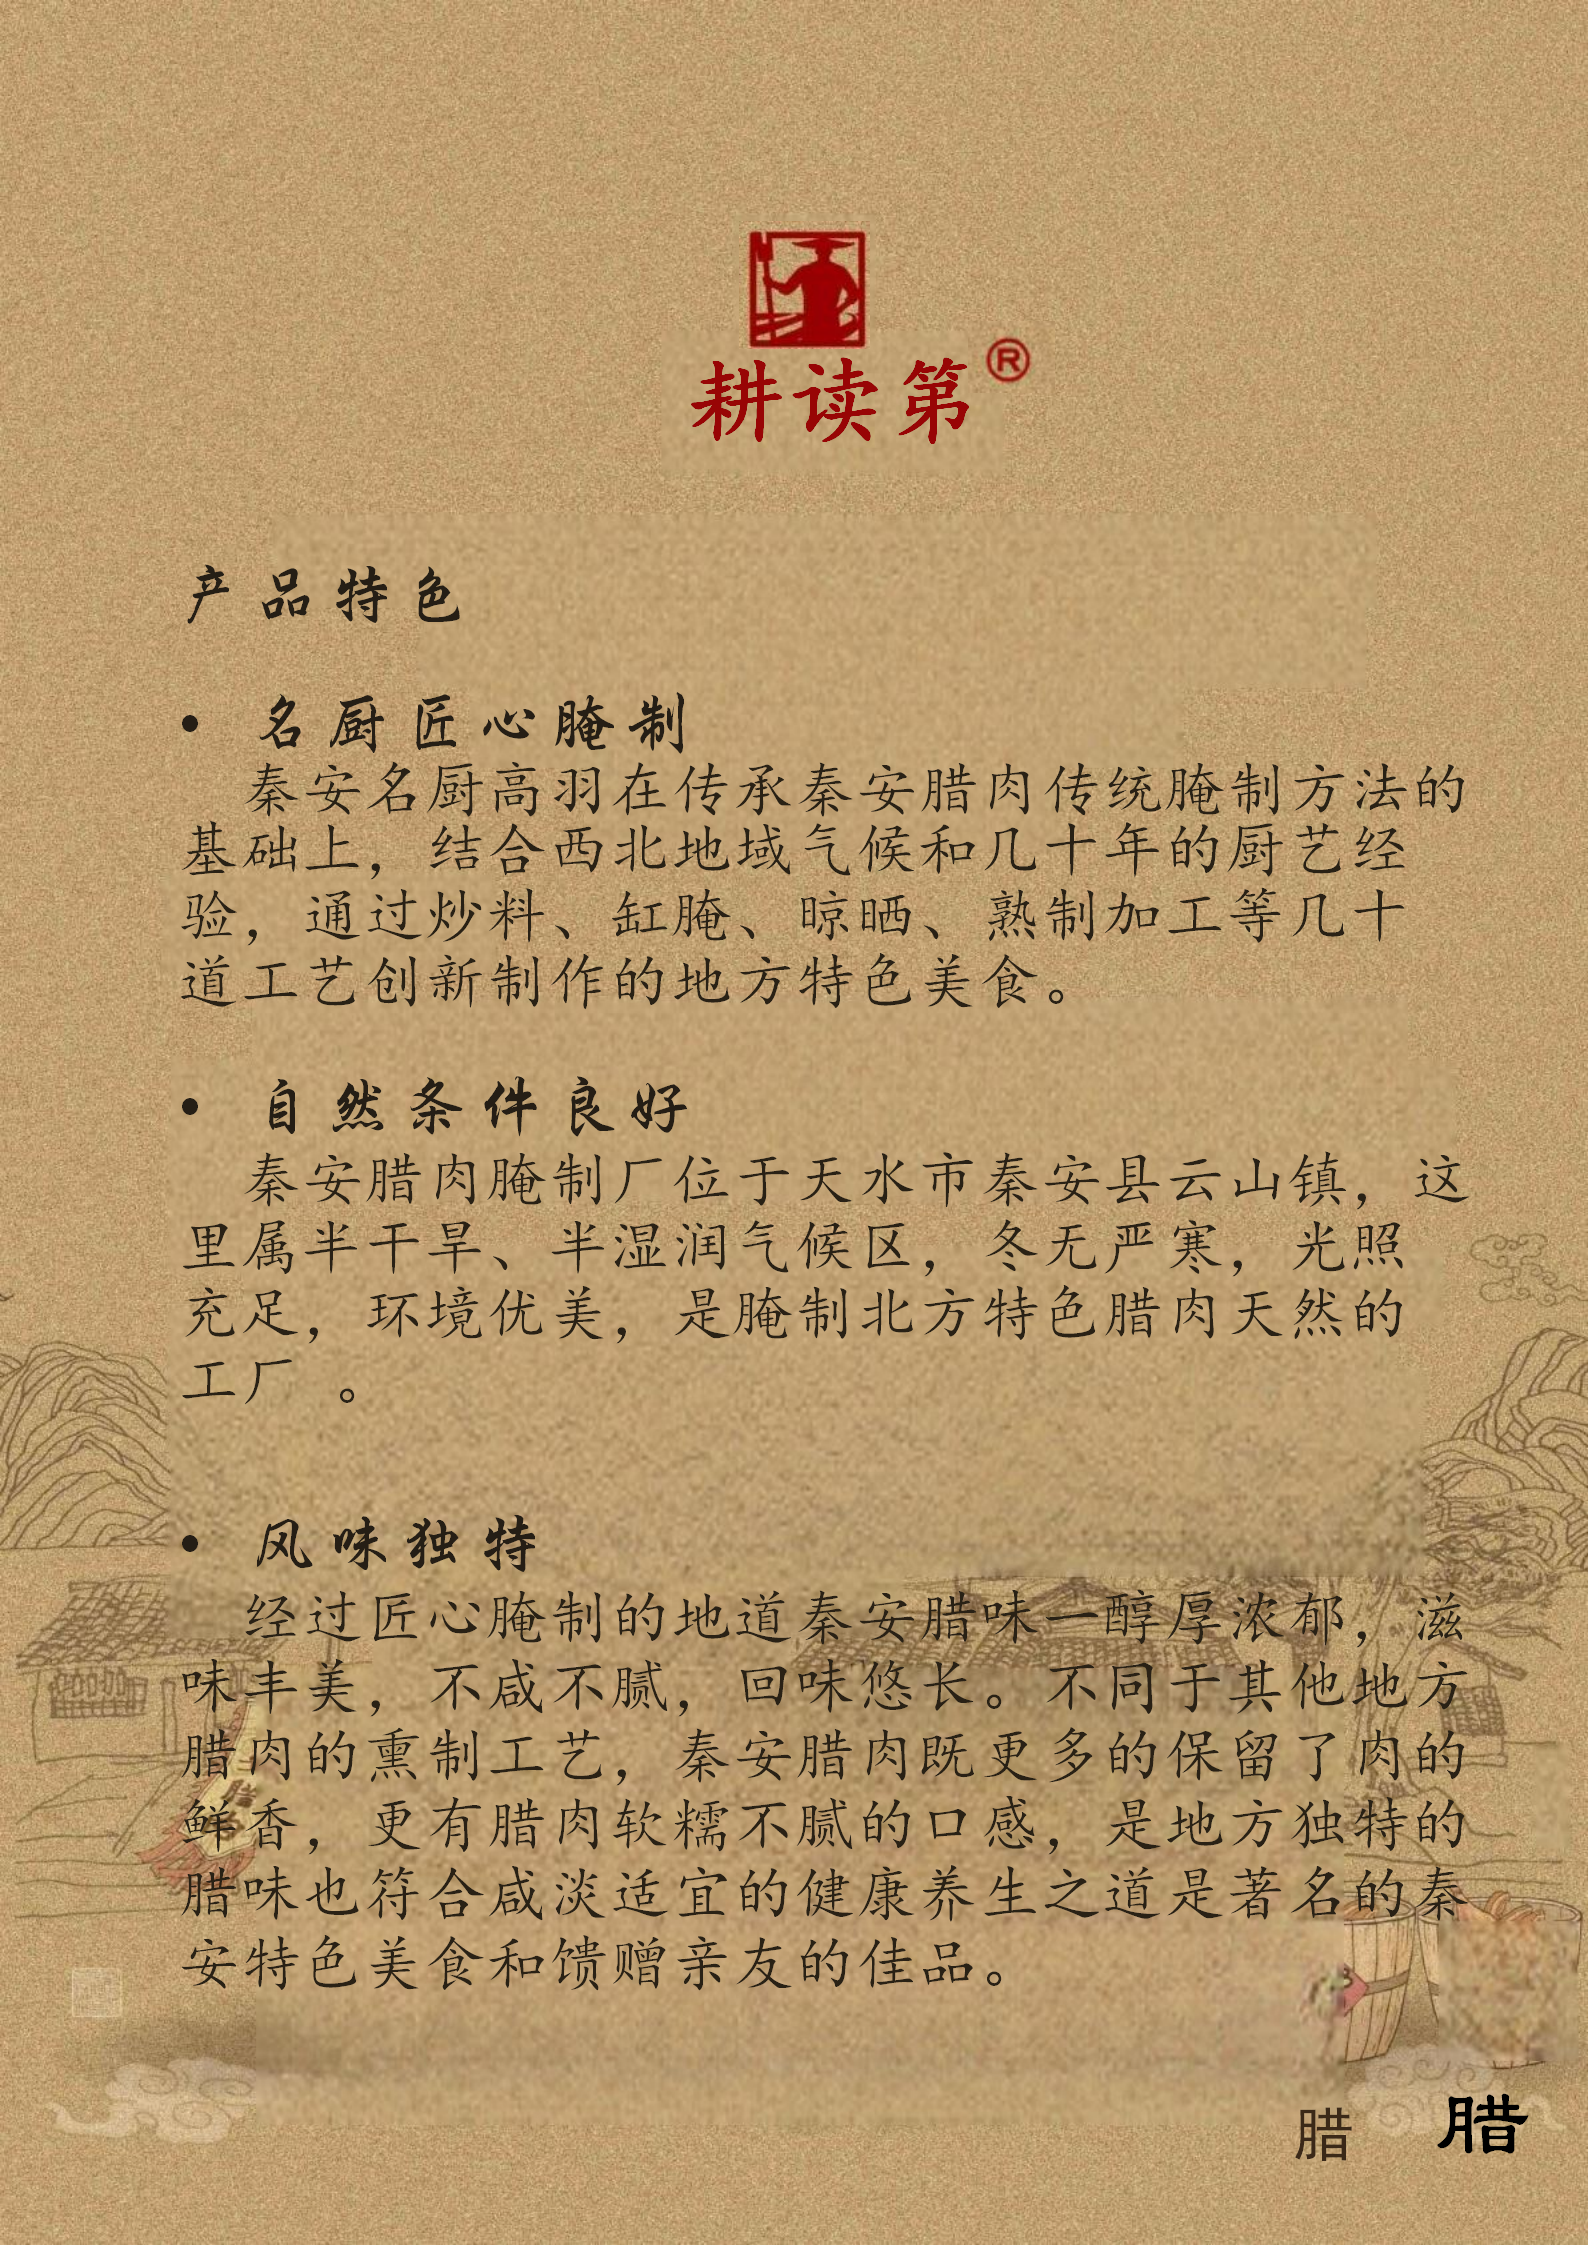 耕读第®
产品特色
• 名厨匠心腌制
秦安名厨高羽在传承秦安腊肉传统腌制方法的
基础上，结合西北地域气候和几十年的厨艺经
验，通过炒料、缸腌、晾晒、熟制加工等几十
道工艺创新制作的地方特色美食。
• 自然条件良好
秦安腊肉腌制厂位于天水市秦安县云山镇，这
里属半干旱、半湿润气候区，冬无严寒，光照
充足，环境优美，是腌制北方特色腊肉天然的
工厂 。
• 风味独特
经过匠心腌制的地道秦安腊味一醇厚浓郁，滋
味丰美，不咸不腻，回味悠长。不同于其他地方
腊肉的熏制工艺，秦安腊肉既更多的保留了肉的
鲜香，更有腊肉软糯不腻的口感，是地方独特的
腊味也符合咸淡适宜的健康养生之道是著名的秦
安特色美食和馈赠亲友的佳品。
腊 腊